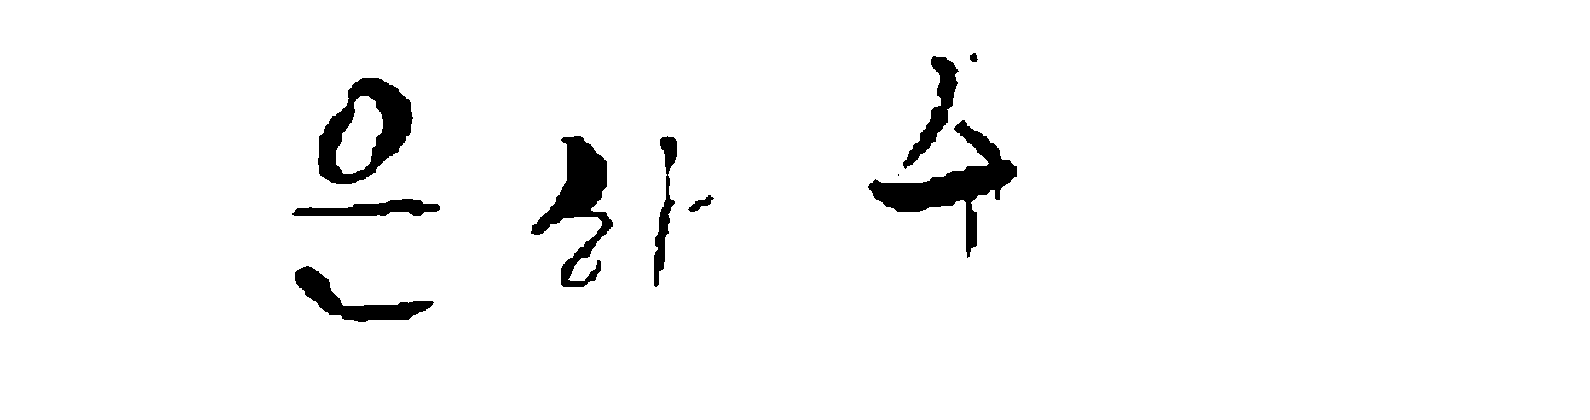 은하수